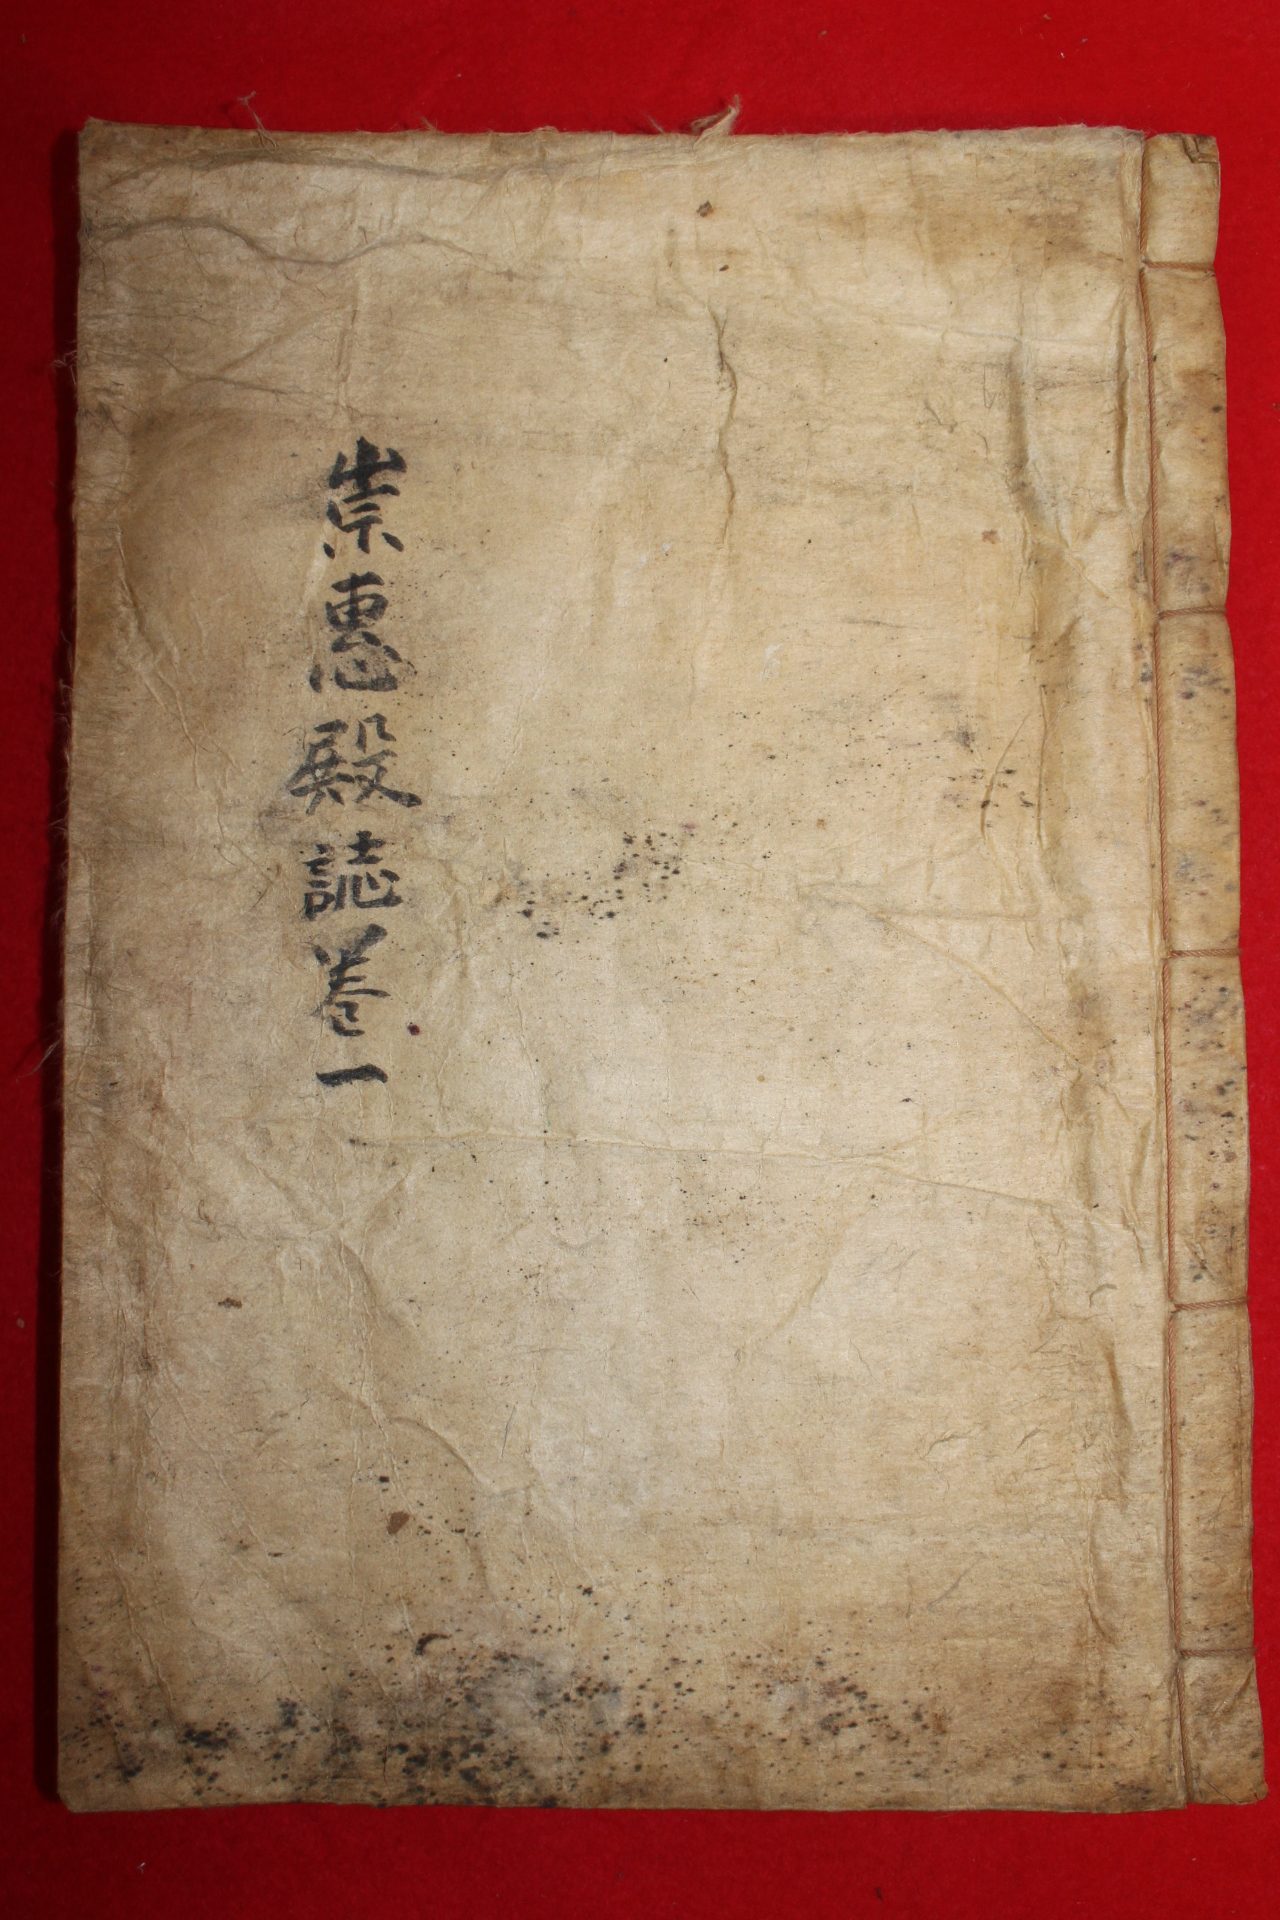 崇惠殿誌卷一